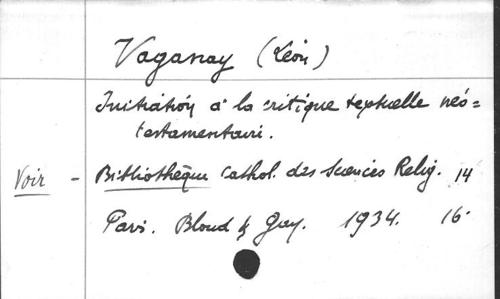 Vaganay (Léon)
Initiation à la critique textuelle néo=
testamentaire.
Voir - Bibliothèque Cathol. des Sciences Relig. 14
Paris. Bloud & Gay. 1934. 16°